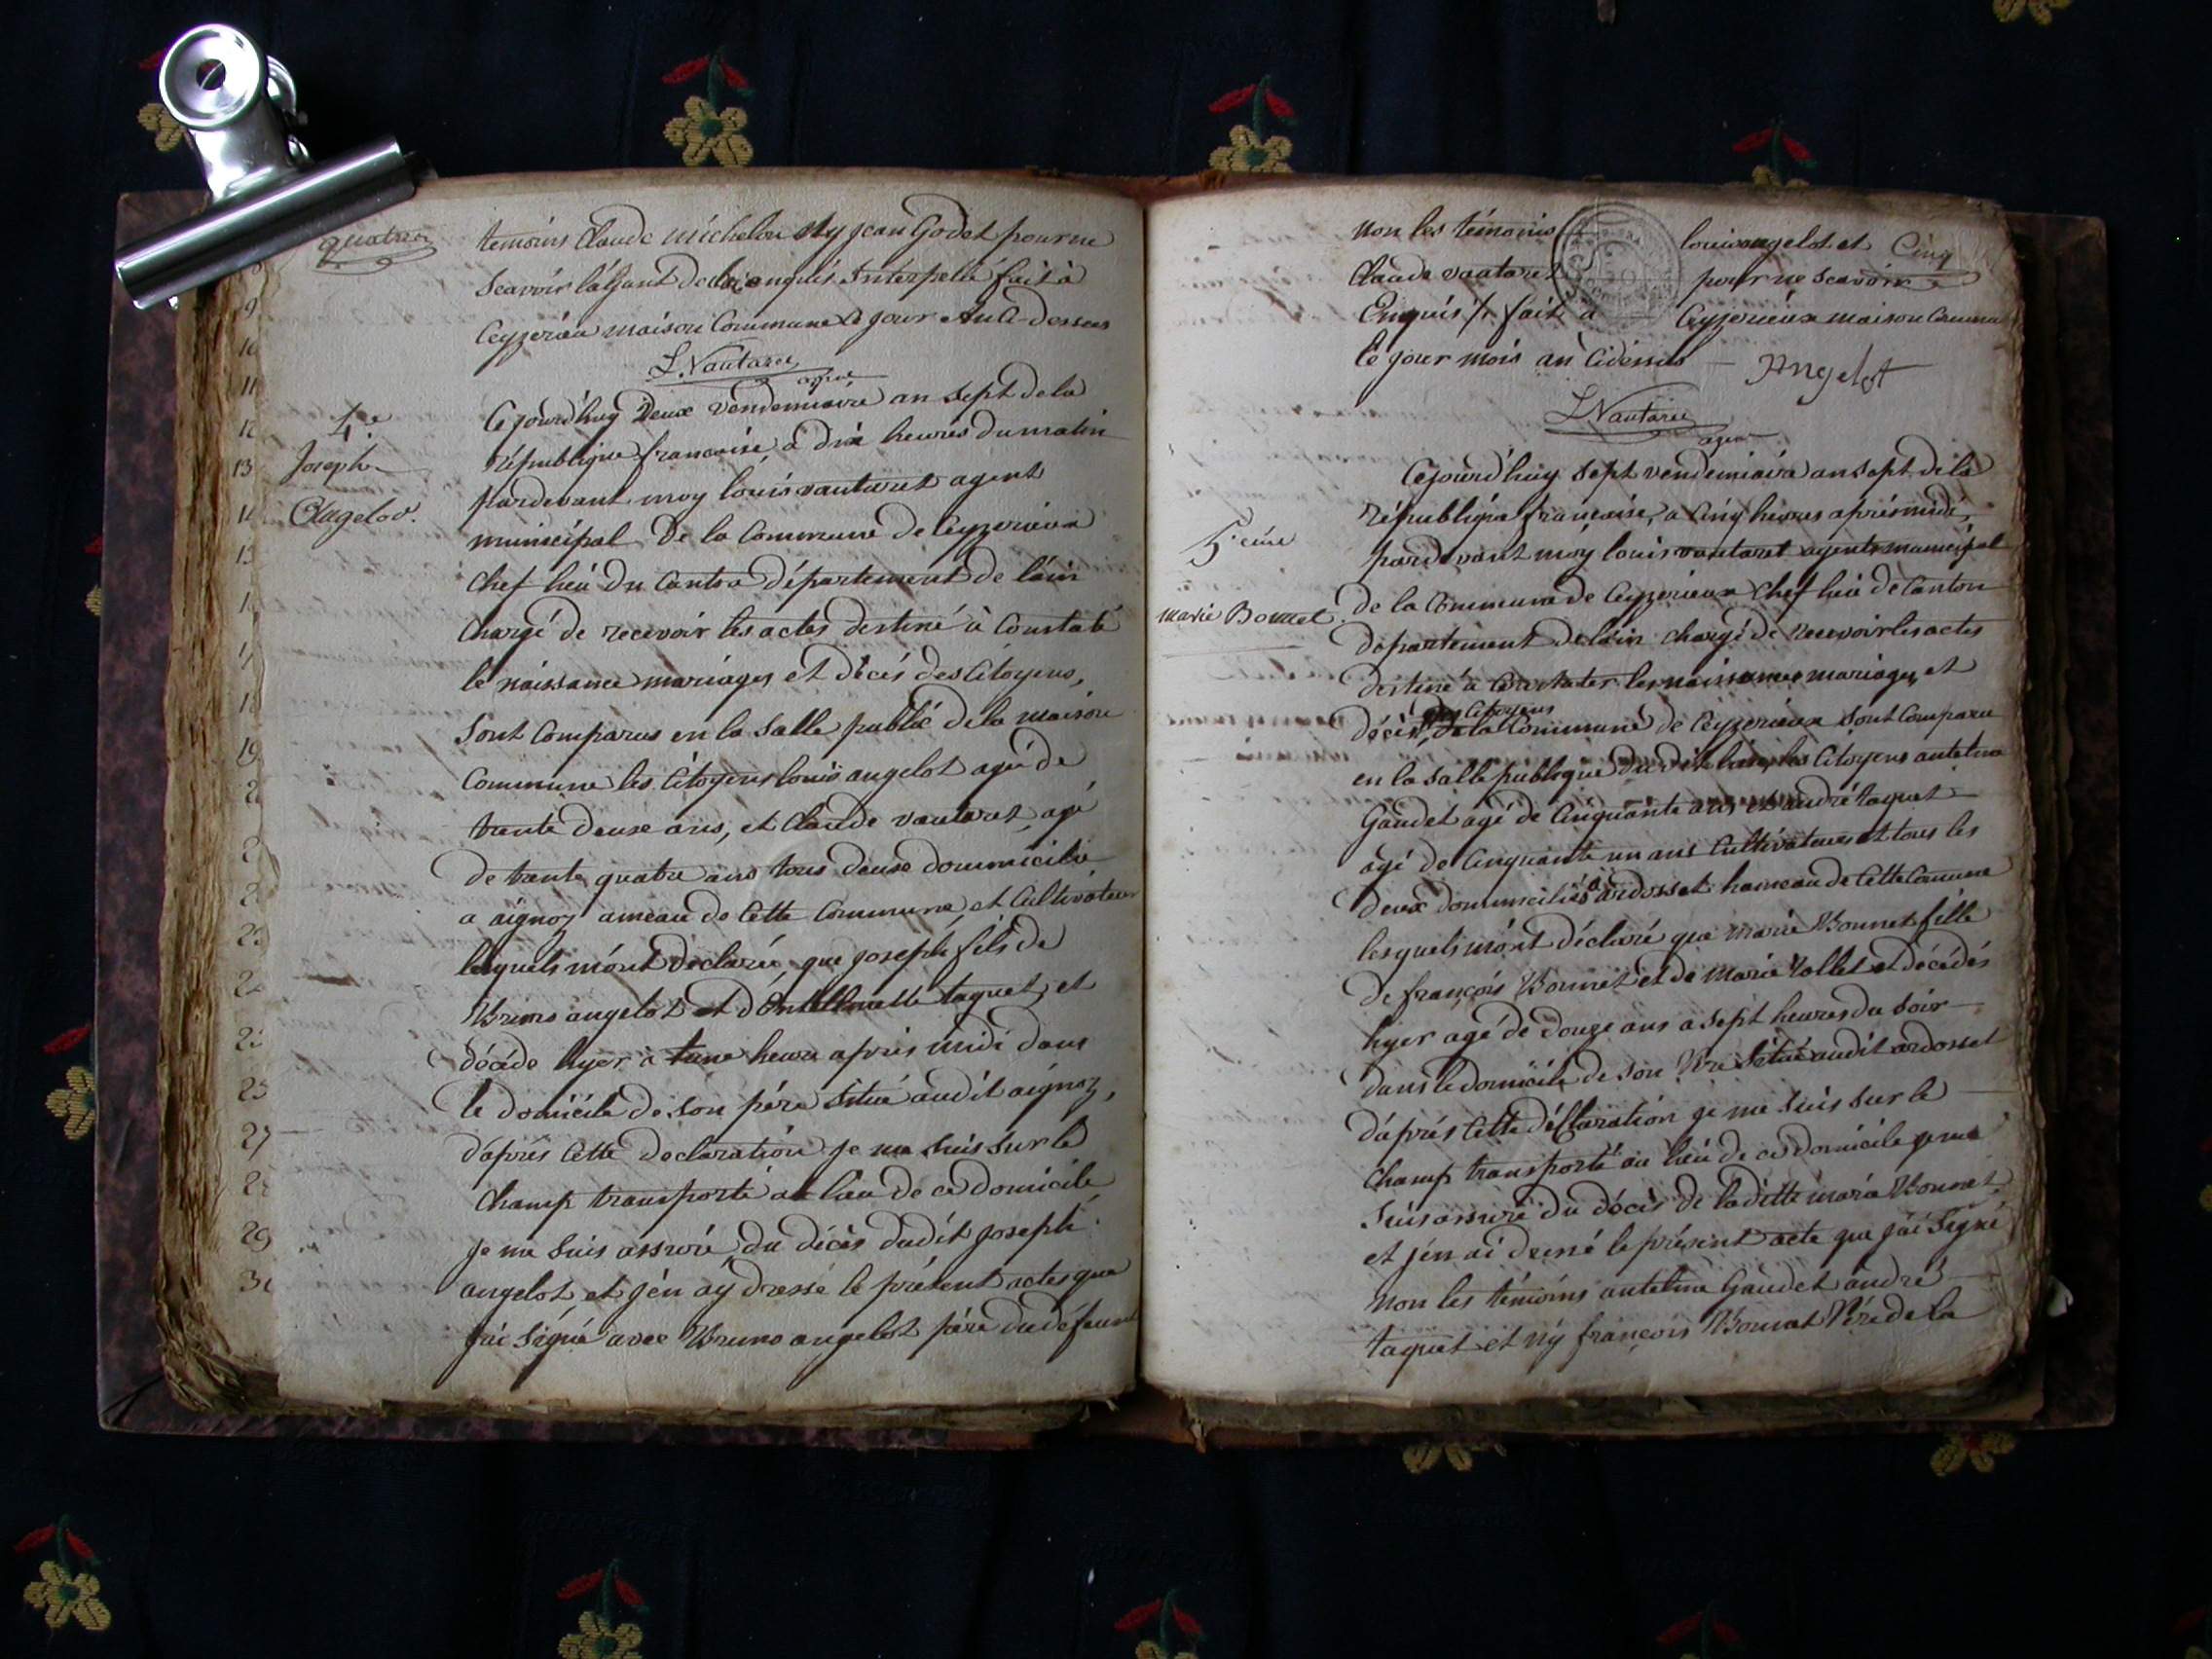 quatre
temoins Claude michelou Ny jean Godet pour ne
Scavoir l'aÿant de ce enquis Interpellé fait à
Ceyzerieu maison Commune le jour An Ci-dessus
L. Vautaret
agent
4.e
Joseph
Angelot.
Cejourd'huy Deux vendemiaire an sept de la
république francaise, a dix heures du matin
pardevant moy louis vautaret agent
municipal De la Commune de Ceyzerieux
Chef lieu Du Canton département de l'ain
Chargé de recevoir les actes destiné à Constaté
le naissance mariages et décés des Citoyens,
Sont Comparus en la Salle public de la maison
Commune les Citoyens louis angelot agé de
trente deux ans, et Claude vautaret, agé
de trente quatre ans tous deux doumicilié
a aignoz ameau de Cette Commune, et Cultivateur
lesquels m'ont déclarée, que joseph fils de
Bruno angelot et d'Anthelmette taquet, et
décédé hyer a une heure aprés midi dans
le domicile de son pére Situé audit aignoz,
d'aprés Cette declaration je me suis sur le
Champ transporté au lieu de ce domicile
je me Suis assuré du décès dudit joseph
angelot et j'en aÿ dressé le présent actes que
j'ai Signé avec Bruno angelot pére du défeunt
Cinq
non les témoins louis angelot et
Claude vautaret pour ne Scavoir
Enquis /. fait a Ceyzerieux maison Commune
le jour mois an Cidessus — Angelot
L. Vautaret
agent
5.eme
marie Bonnet.
Cejourd'huy Sept vendemiaire an sept de la
république francaise, a Cinq heures aprés midi,
pardevant moy louis vautaret agent municipal
de la Commune de Ceyzerieux Chef lieu de Canton
département de l'ain chargé de recevoir les actes
destiné a Constater les naissances mariages, et
des Citoyens
décés, de la Commune de Ceyzerieux Sont Comparu
en la salle publique dudit lieu, les Citoyens antelme
Gaudet agé de Cinquante ans, et andré taquet
agé de Cinquante un ans Cultivateurs et tous les
deux doumiciliés a ardosset hameau de Cette Commune
lesquels m'ont déclaré que marie Bonnet fille
De françois Bonnet et de Marie Vollet et décédés
hyer agé de Douze ans a sept heures du Soir
dans le domicile de son Pére Situé audit ardosset
d'aprés Cette déclaration je me suis sur le
Champ transporté au lieu de ce domicile je me
Suis assuré du décés de laditte marie Bonnet
et j'en ai dressé le présent acte que j'ai Signé
non les témoins antelme Gaudet andré
taquet et n'y françois Bonnet Pére de la
9
10
11
12
13
14
15
19
29